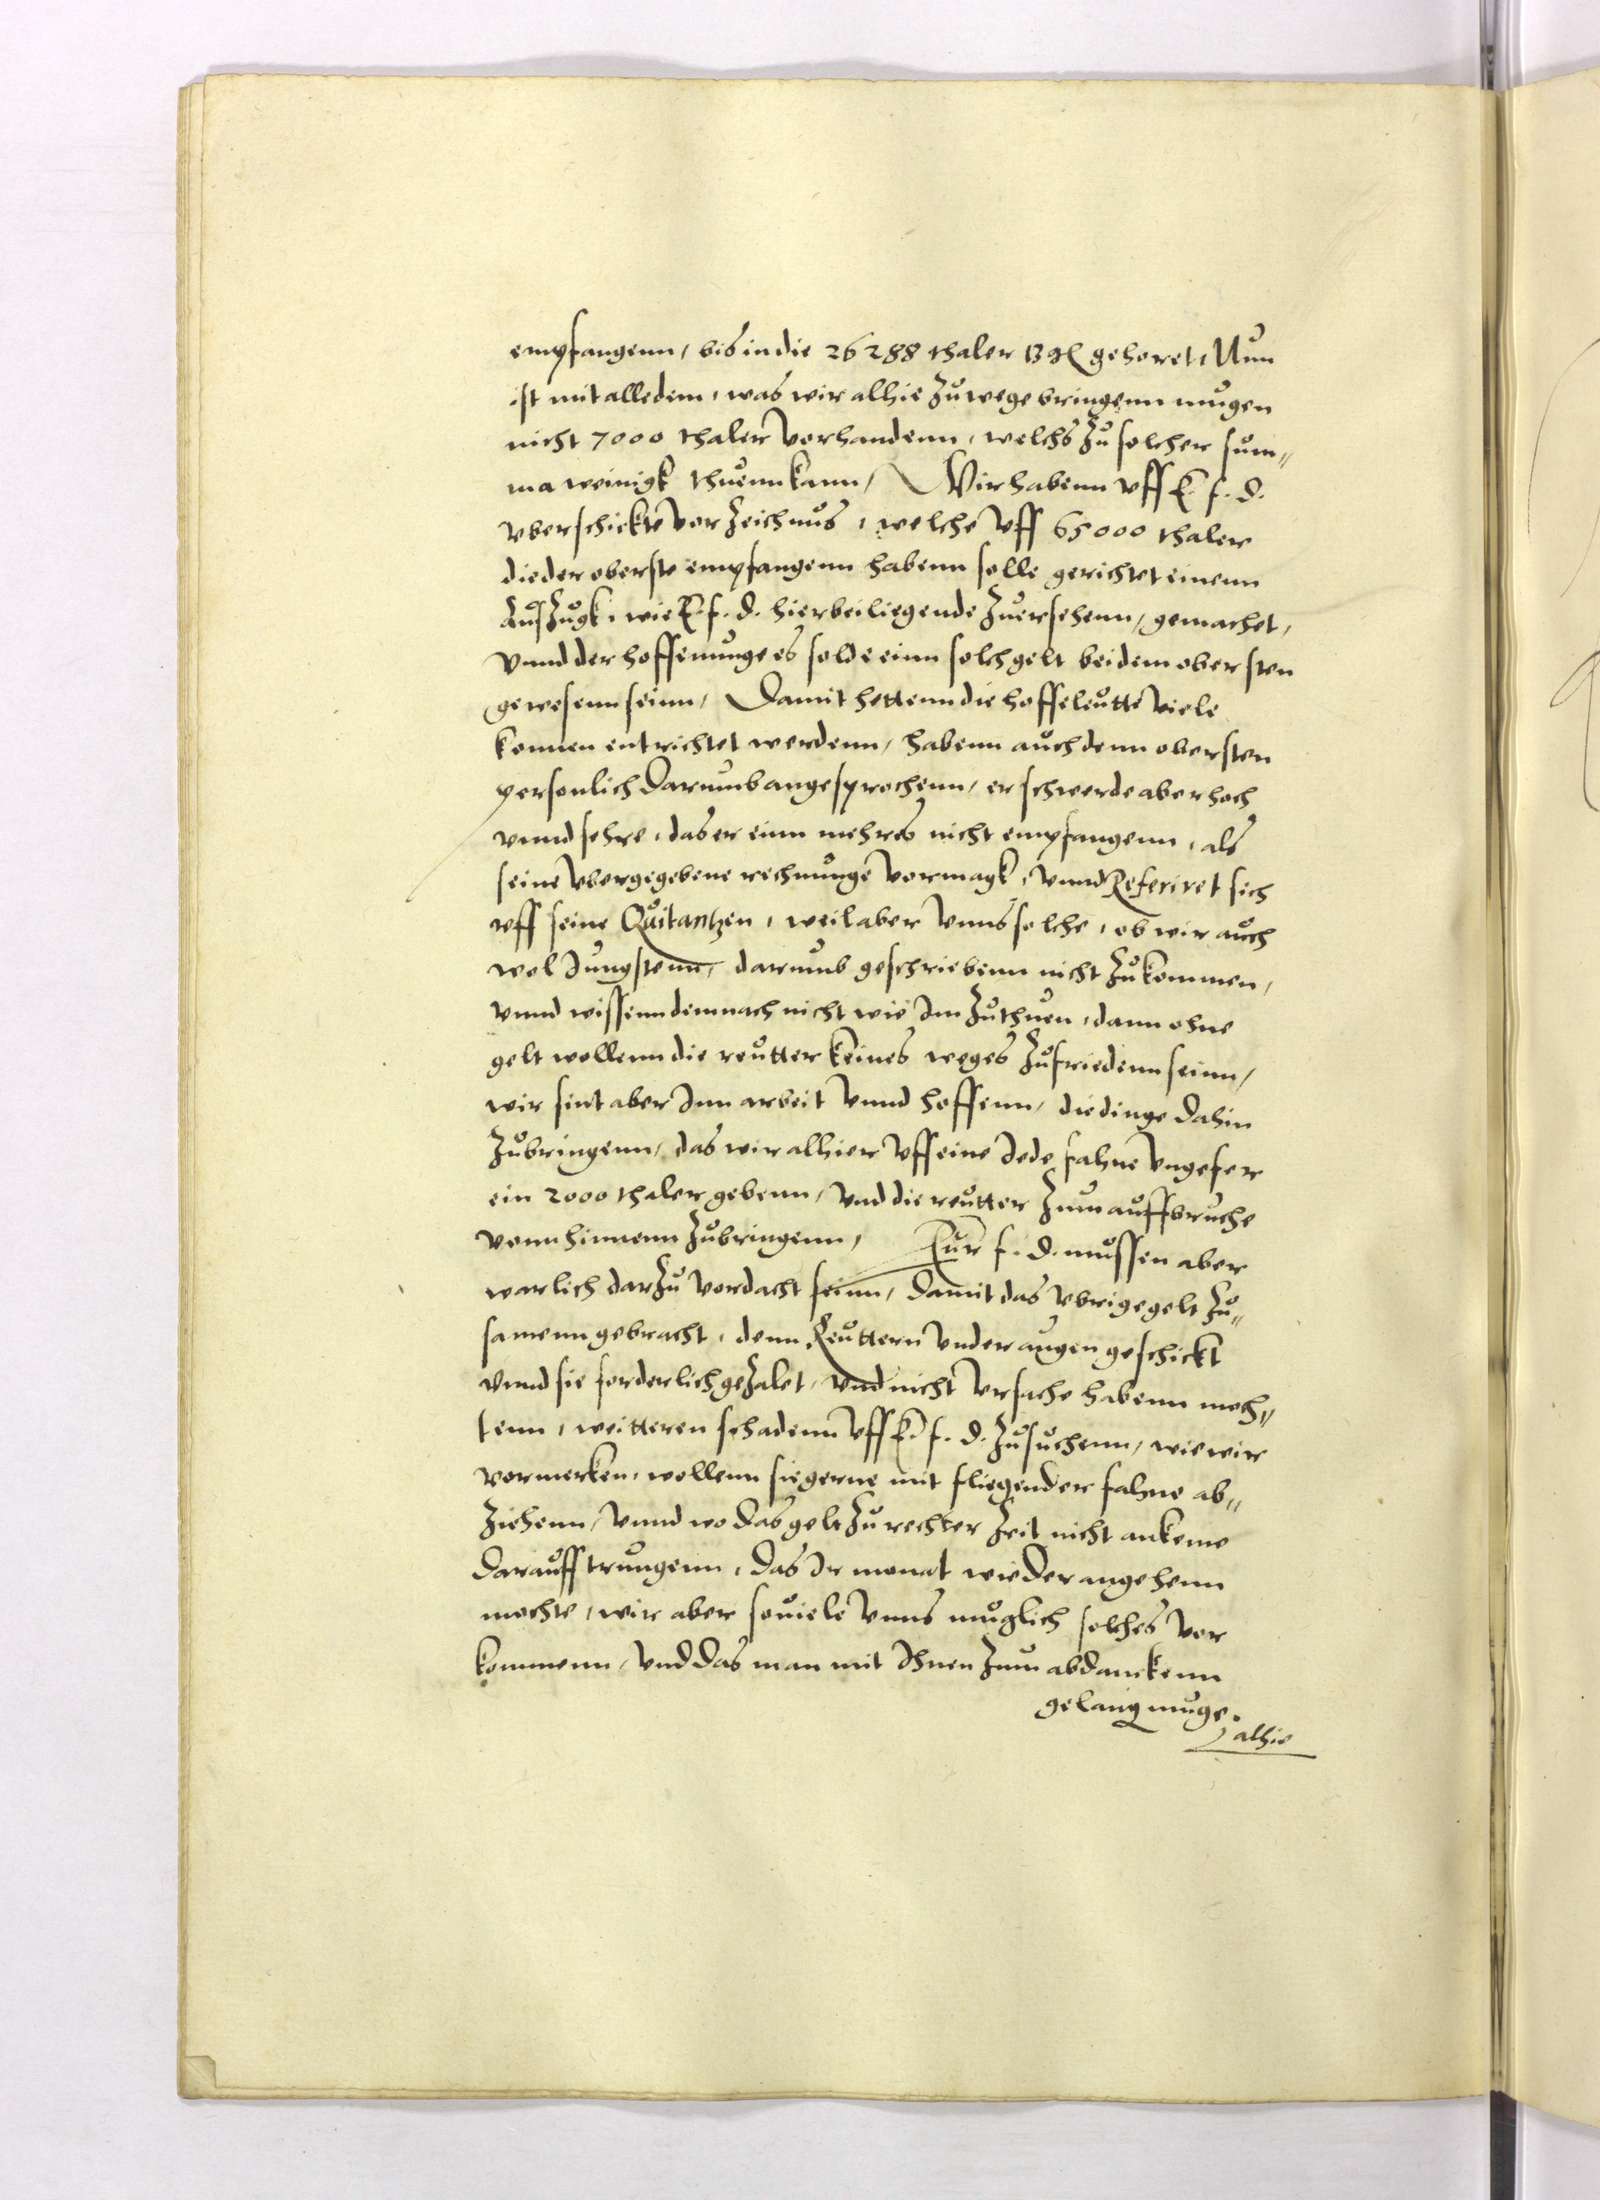 empfangenn, bis in die 26288 thaler 13 gl gehoret, Nun
ist mit alledem, was wir alhie zuwege bringenn mugen
nicht 7000 thaler vorhandenn, welchs zu solcher sum„
ma weinigk thuenn kann, Wir habenn vff E f. d.
vberschickte vorzeichnus, welche vff 65000 thaler
die der oberste empfangenn habenn solle gerichtet einenn
Auszugk, wie E. f. d. hierbei liegende zuersehenn, gemachet,
vnnd der hoffenunge es solde einn solch gelt bei dem obersten
gewesenn seinn, Damit hettenn die hoffeleutte viele
konnen entrichtet werdenn, habenn auch denn obersten
personlich darumb angesprochenn, er schwerde aber hoch
vnnd sehre, das er einn mehres nicht empfangenn, als
seine vbergegebene rechnunge vormagk, vnnd Referiret sich
vff seine Quitantzen, weil aber vnns solche, ob wir auch
wol Jungstenn, darumb geschriebenn nicht zukommen,
vnnd wissenn demnach nicht wie Im zuthuen, dann ohne
gelt wollenn die reutter keines weges zufriedenn seinn,
wir sint aber Inn arbeit vnnd hoffenn, die dinge dahin
zubringenn, das wir alhier vff eine Jede fahne vngefer
ein 2000 thaler gebenn, vnd die reutter zum auffbruche
vonn hinnenn zubringenn, Eur f. d. mussen aber
warlich darzu vordacht seinn, damit das vbrige gelt zu„
samenn gebracht, denn Reuttern vnder augen geschickt
vnnd sie forderlich gezalet, vnd nicht vrsache habenn moch„
tenn, weitteren schadenn vff E. f. d. zusuchenn, wie wir
vormerken, wollenn sie gerne mit fliegender fahne ab„
ziehenn, vnnd wo das gelt zu rechter zeit nicht ankeme
darauff trungenn, das Ir monat wieder angehenn
mochte, wir aber souiele vnns muglich solches vor
kommenn, vnd das man mit Ihnen zum abdanckenn
gelang muge.
alhie